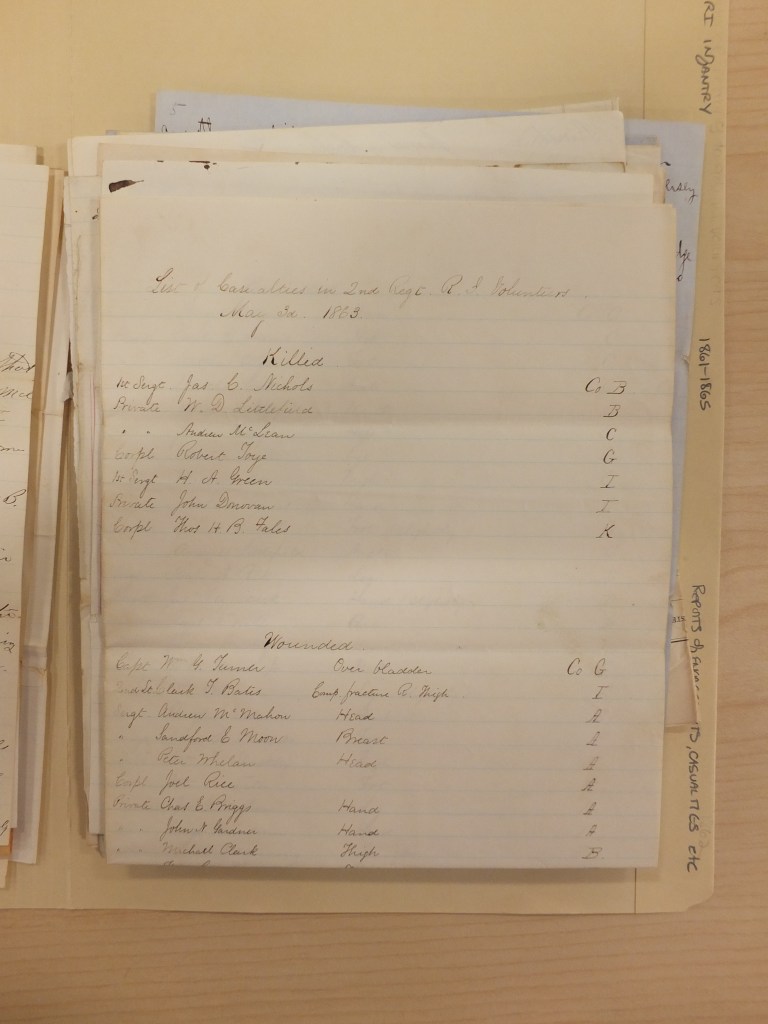 List of Casualties in 2nd Regt. R. I. Volunteers.
May 3d. 1863.
Killed
1st Sergt. Jas C. Nichols Co B
Private W. D. Littlefield B
" " Andrew McLean C
Corpl Robert Toye G
1st Sergt H. A. Green I
Private John Donovan I
Corpl Thos H. B. Fales K
Wounded.
Capt W. G. Turner Over bladder Co G
2nd Lt. Clark T. Bates Comp. fracture R. Thigh I
Sergt Andrew McMahon Head A
" Sandford E Moon Breast A
" Peter Whelan Head A
Corpl Joel Rice A
Private Chas E. Briggs Hand A
" " John N Gardner Hand A
" " Michael Clark Thigh B
RI INFANTRY
1861-1865
REPORTS
CASUALTIES etc
5
B.